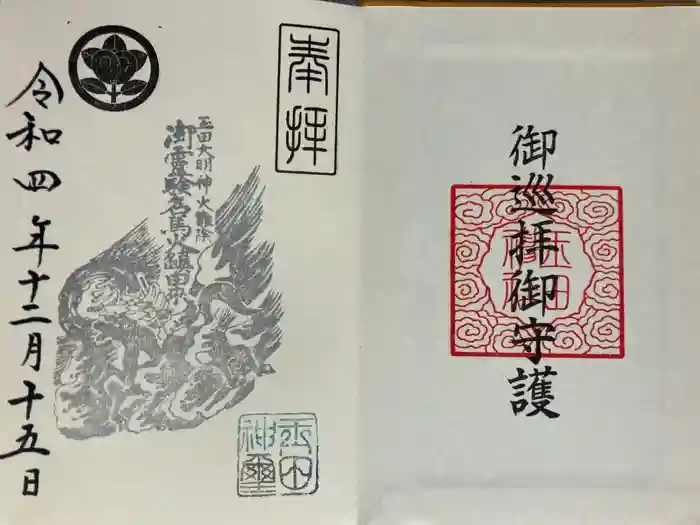 御巡拝御守護
奉拝
玉田大明神火難除
御霊験名馬火鎮図
令和四年十二月十五日
玉田
神璽